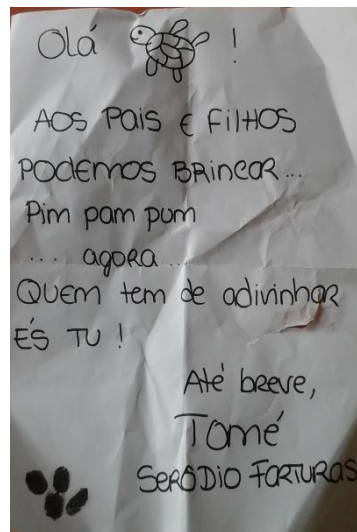 Olá !
AOS PAIS E FILHOS
PODEMOS BRINCAR...
Pim pam pum
.... agora...
QUEM tem de adivinhar
ÉS TU !
Até breve,
Tomé
SERÓDIO FARTURAS